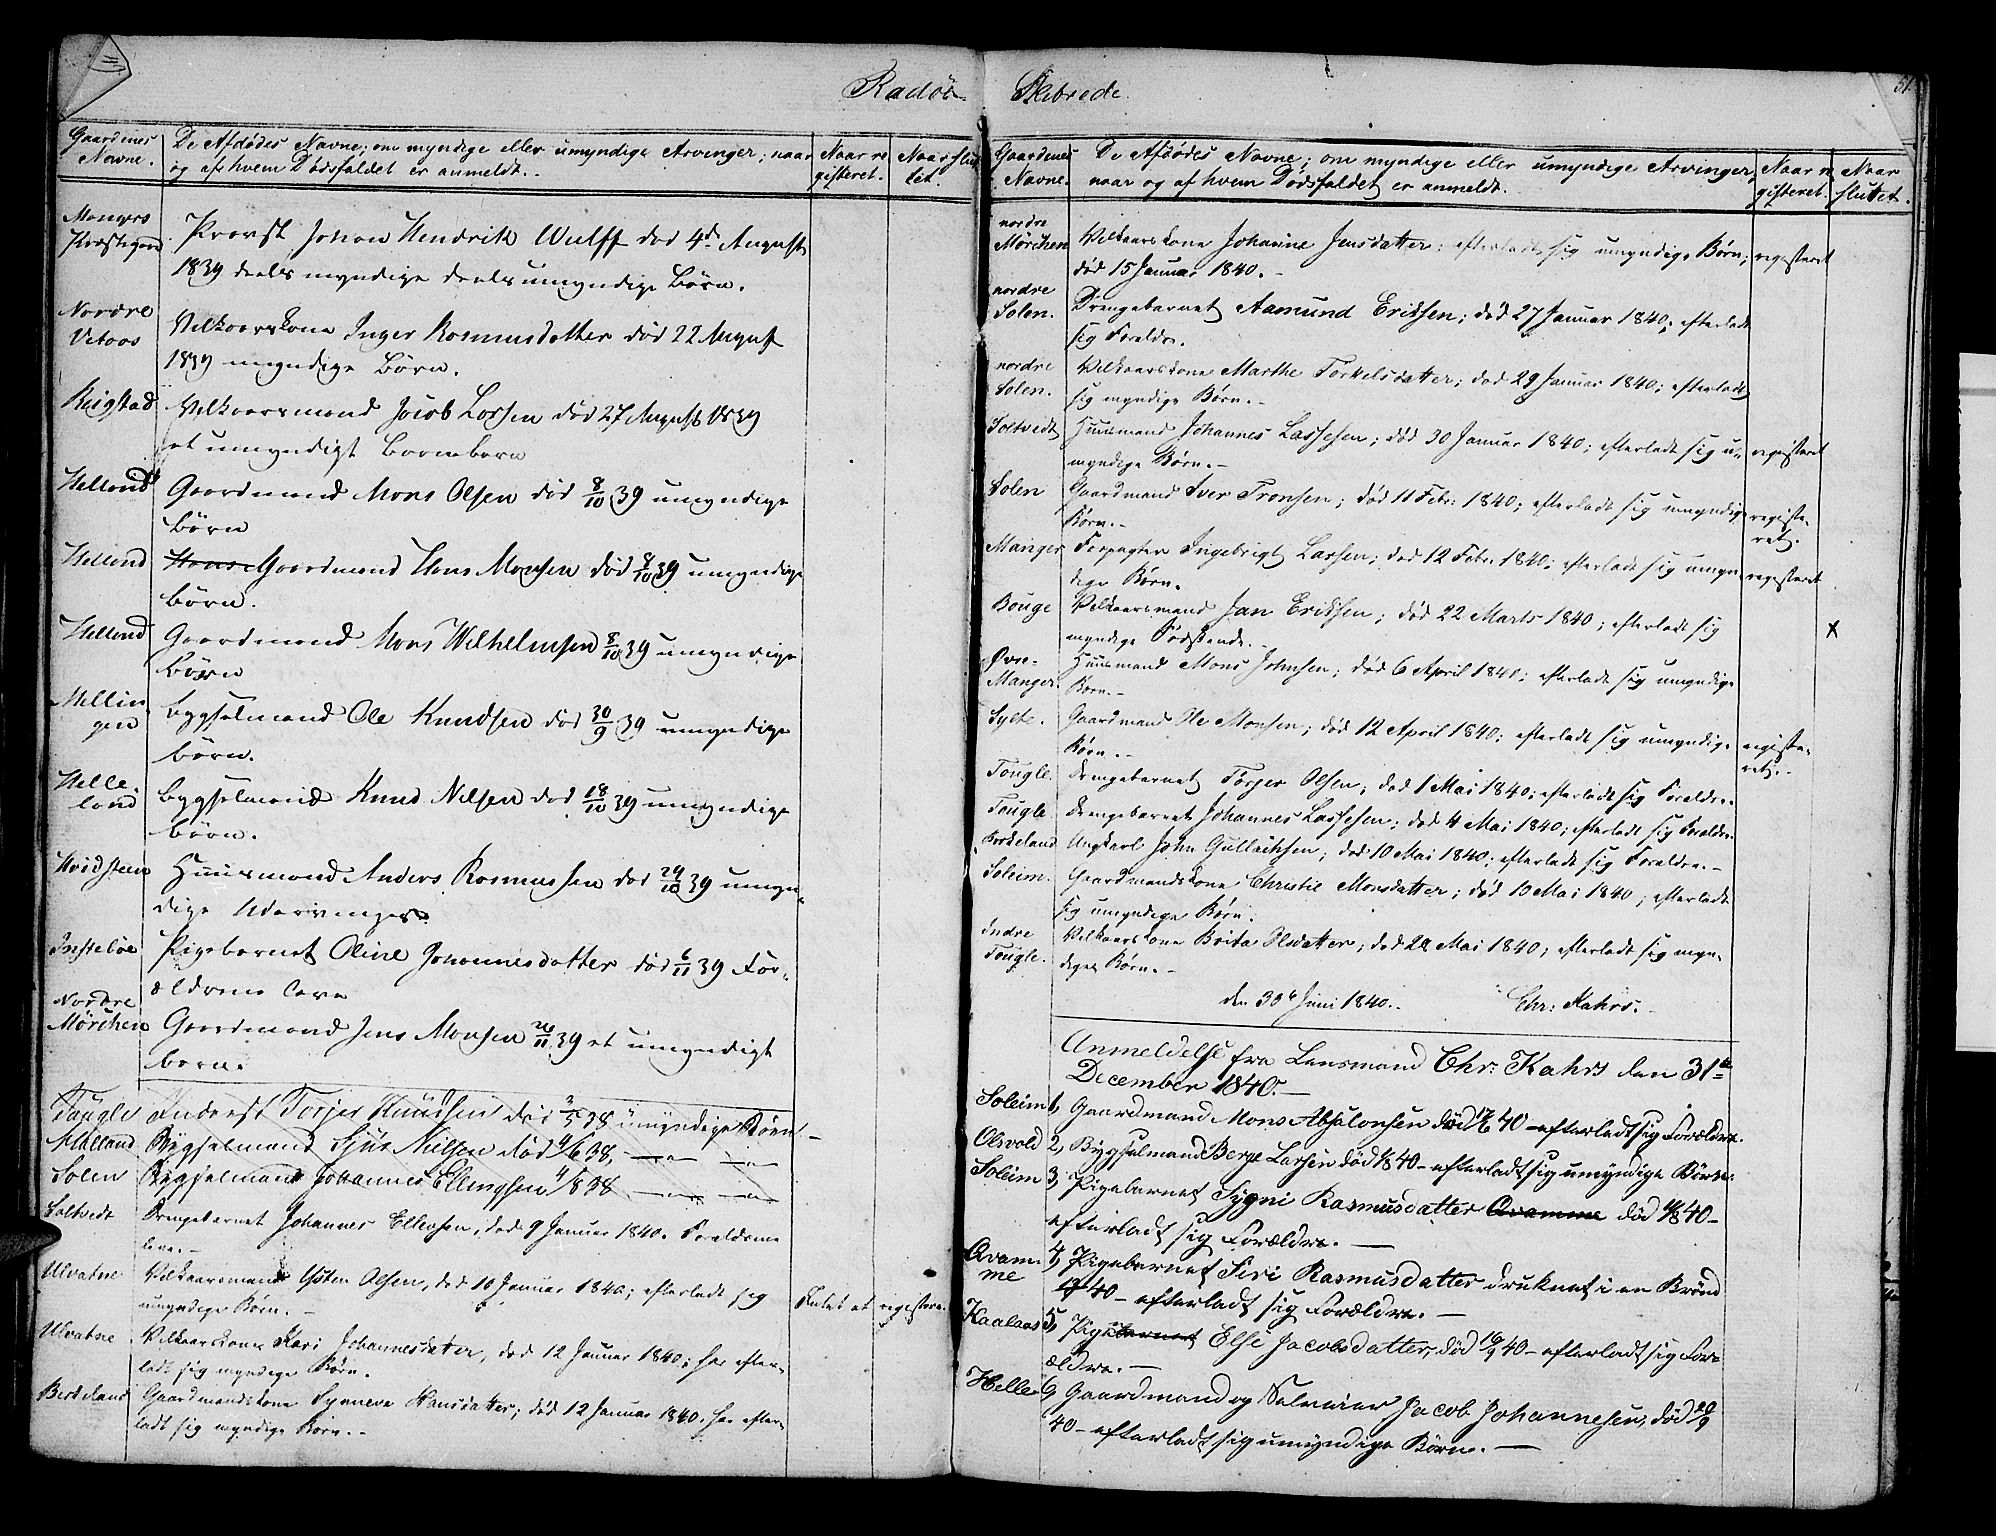 Radöe Skibrede
51
Gaardenes Navne.
De Afdödes Navne; om myndige eller umyndige Arvinger; naar
og af hvem Dödsfaldet er anmeldt.
Naar re
gisteret.
Naar slut
tet.
Mangers
Præstegard
Provst Johan Hendrik Wulff död 4de August
1839 deels myndige deels umyndige Börn.
Nordre
Vetaas
Velkaarskone Inger Rasmusdatter död 22 August
1839 myndige Börn.
Rigstad
Velkaarsmand Jacob Larsen död 27 August 1839
et umyndigt Barnebarn
Helland
Gaardmand Mons Olsen död 8/10 39 umyndige
Börn
Helland
Hans Gaardmand Hans Monsen död 8/10 39 umyndige
börn.
Helland
Gaardmand Mons Wilhelmsen 8/10 39 umyndige
Börn
Hellin-
gen
Bygselmand Ole Knudsen död 30/9 39 umyndige
börn.
Helle-
land
Bygselmand Knud Nilsen död 18/10 39 umyndige
börn.
Hvidsteen
Huusmand Anders Rasmussen död 29/10 39 umyn-
dige Udarvinger.
Insteböe
Pigebarnet Oline Johannesdatter död 6/11 39 For-
ældrene leve
Nordre
Mörchen
Gaardmand Jens Monsen 26/11 39 et umyndigt
barn.
Tougle Inderst Torjer Knudsen död 38 umyndige Börn
Hælland Bygselmand Sjur Nilsen död 4/6 38,
Solen Bygselmand Johannes Ellingsen 4/8 38
Soltvedt Drengebarnet Johannes Ellensen, död 9 Januar 1840. Foreldrene
leve.
Ulvatne Velkaarsmand Østen Olsen, död 10 Januar 1840; efterladt sig
umyndige Börn.
Intet at registere.
Ulvatne Velkaarskone Kari Johannesdatter, död 12 Januar 1840; har efter-
ladt sig myndige Börn.
Birkeland Gaardmandskone Synneve Hansdatter; död 12 Januar 1840. har efter-
ladt sig myndige Börn.
Gaardenes
Navne.
De Afdödes Navne; om myndige eller umyndige Arvinger,
naar og af hvem Dödsfaldet er anmeldt.
Naar re
gisteret.
Naar
sluttet.
nordre
Mörchen
Velkaarskone Johanne Jensdatter; efterladt sig umyndige Börn; registeret
död 15 Januar 1840.
nordre
Solen.
Drengebarnet Aamund Eriksen; död 27 Januar 1840; efterladt
sig Foreldre.
nordre
Solen.
Velkaarskone Marthe Torkelsdatter; död 29 Januar 1840; efterladt
sig myndige Börn.
Soltvedt Huusmand Johannes Lassesen; död 30 Januar 1840; efterladt sig u- registeret
myndige Börn.
Solen Gaardmand Iver Tronsen; död 11 Febr. 1840; efterladt sig umyndige registe-
Börn. ret.
Manger Forpagter Ingebrigt Larsen; död 12 Febr. 1840; efterladt sig umyn- registeret
dige Börn.
Bouge Velkaarsmand Jan Eriksen; död 22 Marts 1840; efterladt sig
myndige Södskende. x
Øvre-
Manger. Huusmand Mons Johnsen; död 6 April 1840; efterladt sig umyndige
Börn.
Sylte. Gaardmand Ole Monsen; död 12 April 1840; efterladt sig umyndige registe-
Börn. ret.
Tougle. Drengebarnet Torjer Olsen, död 1 Mai 1840; efterladt sig Foreldre.
Tougle. Drengebarnet Johannes Lassesen; död 4 Mai 1840; efterladt sig Foreldre.
Birkeland Ungkarl John Gullachsen; död 10 Mai 1840; efterladt sig Foreldre.
Soleim. Gaardmandskone Christie Monsdatter; död 13 Mai 1840; efterladt
sig umyndige Börn.
Indre
Tougle. Velkaarskone Brita Olsdatter; död 24 Mai 1840; efterladt sig myn-
dige Börn.
den 30te Juni 1840. Chr: Kahrs.
Anmeldelse fra Lensmand Chr: Kahrs den 31te
December 1840.
Soleim 1, Gaardmand Mons Absalonsen död 17/6 40 – efterladt sig Forældre.
Olsvold 2, Bygselmand Berge Larsen död 1/8 40 – efterladt sig umyndige Börn.
Soleim 3, Pigebarnet Sygni Rasmusdatter Qvamme död 4/8 40 –
efterladt sig Forældre.
Qvam-
me 4, Pigebarnet Siri Rasmusdatter druknet i en Brönd
40 – efterladt sig Forældre.
Kaalaas 5, Pigebarnet Else Jacobsdatter, död 16/9 40 – efterladt sig For-
ældre.
Helle 6, Gaardmand og Selveier Jacob Johannesen, död 29/9
40 – efterladt sig umyndige Börn.